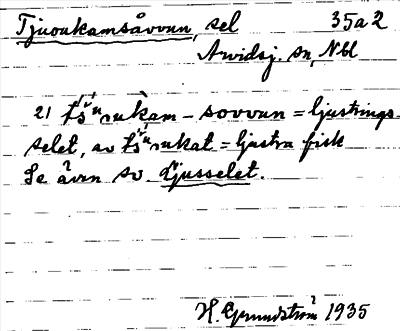 Tjuoukamsåvvun, sel 35a2
Arvidsj. sn, Nbl
21 tšurukam - sovvun = ljustrings-
selet, av tšurukat = ljustra fisk
Se även sv. Ljusselet.
H. Grundström 1935